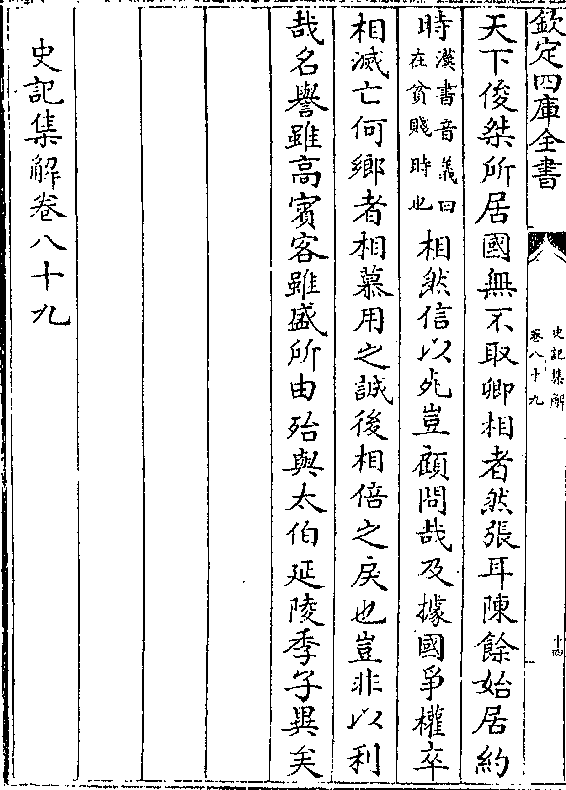 欽定四庫全書
史記集解
卷八十九
十四
天下俊桀所居國無不取卿相者然張耳陳餘始居約
時漢書音義曰在貧賤時也相然信以死豈顧問哉及據國爭權卒
相滅亡何鄉者相慕用之誠後相倍之戾也豈非以利
哉名譽雖高賓客雖盛所由殆與太伯延陵季子異矣
史記集解卷八十九